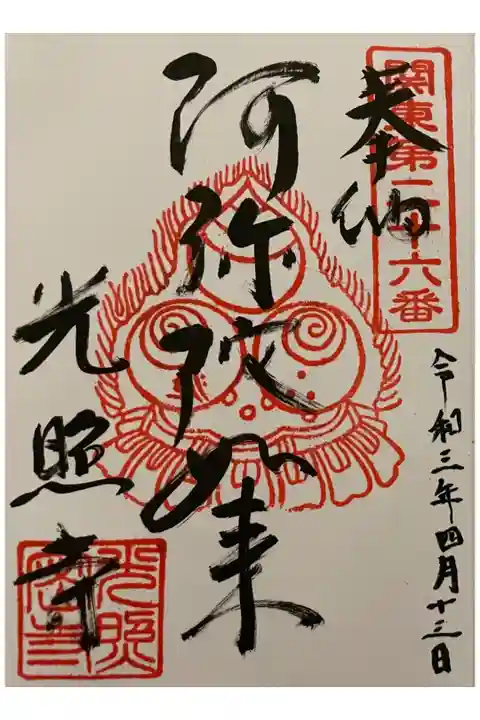 関東第二十六番
奉納
令和三年四月十三日
阿弥陀如来
光照寺
光照